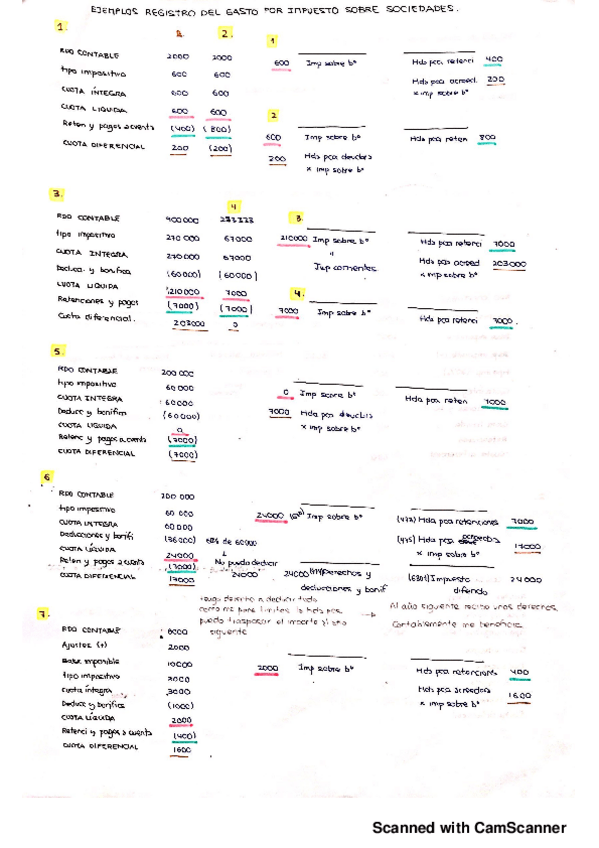 EJEMPLOS REGISTRO DEL GASTO POR IMPUESTO SOBRE SOCIEDADES.
1. 2. 1
RDO CONTABLE 2000 2000 600 Imp sobre bº Hda pca retenci 400
tipo impositivo 600 600 Hda pca acreed. 200
CUOTA ÍNTEGRA 600 600 x imp sobre bº
CUOTA LIQUIDA 600 600 2
Reten y pagos a cuenta (400) (800) 600 Imp sobre bº Hda pca reten 800
CUOTA DIFERENCIAL 200 (200) 200 Hda pca deudora
x imp sobre bº
3. 4
RDO CONTABLE 900000 3.
tipo impositivo 270 000 67000 210000 Imp sobre bº Hda pca retenci 7000
CUOTA INTEGRA 270000 67000 Hda pca acreed 203000
Deducc. y bonifica (60000) (60000) Imp corrientes x imp sobre bº
CUOTA LIQUIDA 210000 7000 4.
Retenciones y pagos (7000) (7000) 7000 Imp sobre bº Hda pca retenci 7000.
Cuota diferencial. 203000 0
5.
RDO CONTABLE 200 000
tipo impositivo 60 000 0 Imp sobre bº Hda pca reten 7000
CUOTA INTEGRA 60000 7000 Hda pca deudora
Deducc y bonifica (60000) x imp sobre bº
CUOTA LIQUIDA 0
Retenc y pagos a cuenta (7000)
CUOTA DIFERENCIAL (7000)
6
RDO CONTABLE 200 000
tipo impositivo 60 000 24000 Imp sobre bº (473) Hda pca retenciones 7000
CUOTA INTEGRA 60000 Hda pca 17000
Deducciones y bonifi (36000) 60% de 60000 x imp sobre bº
CUOTA LÍQUIDA 24000 No puedo deducir
Reten y pagos a cuenta (7000) 24000 24000 Derechos y (6301) Impuesto 24000
CUOTA DIFERENCIAL 17000 deducciones y bonif diferido
Tengo derecho a deducir todo Al año siguiente recibo unos derechos.
como me pone limites la hda pca Contablemente me beneficia.
puedo traspasar el importe al año
siguiente
7.
RDO CONTABLE 8000
Ajustes (+) 2000
Base imponible 10000 2000 Imp sobre bº Hda pca retencions 400
tipo impositivo Hda pca acreedora 1600
Cuota íntegra 3000 x imp sobre bº
Deducc y bonifica (1000)
CUOTA LÍQUIDA 2000
Retenci y pagos a cuenta (400)
CUOTA DIFERENCIAL 1600
Scanned with CamScanner